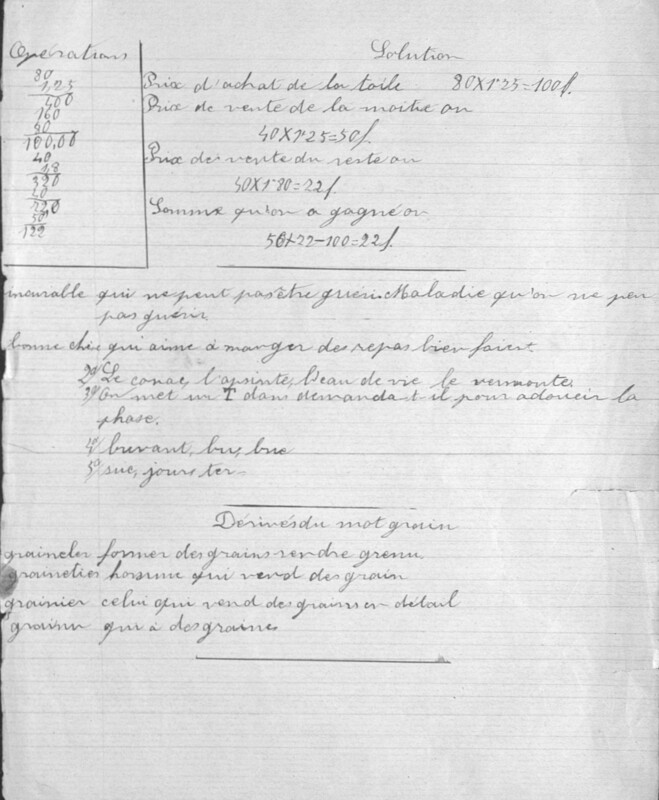 Opérations
80
1,25
400
160
80
100,00
40
1,8
320
40
720
50
122
Solution
Prix d'achat de la toile 80X1f25=100f.
Prix de vente de la moitie ou
40X1f25=50f.
Prix de vente du reste ou
40X1f80=22f
Somme qu'on a gagné ou
50+22-100=22f.
incurable qui ne peut pas être guéri. Maladie qu'on ne peu
pas guérir.
bonne chic qui aime à manger des repas bien faient
2º/ Le conac, l'apsinte, l'eau de vie, le vermonte,
3º/ On met un T dans demanda-t-il pour adoucir la
phase.
4º/ buvant, bu, bue
5º/ suc, jours, ter-
Dérivés du mot grain
graineler former des grains rendre grenu.
graineties homme qui vend des grain
grainier celui qui vend des grains en détail
grainu qui à des graines